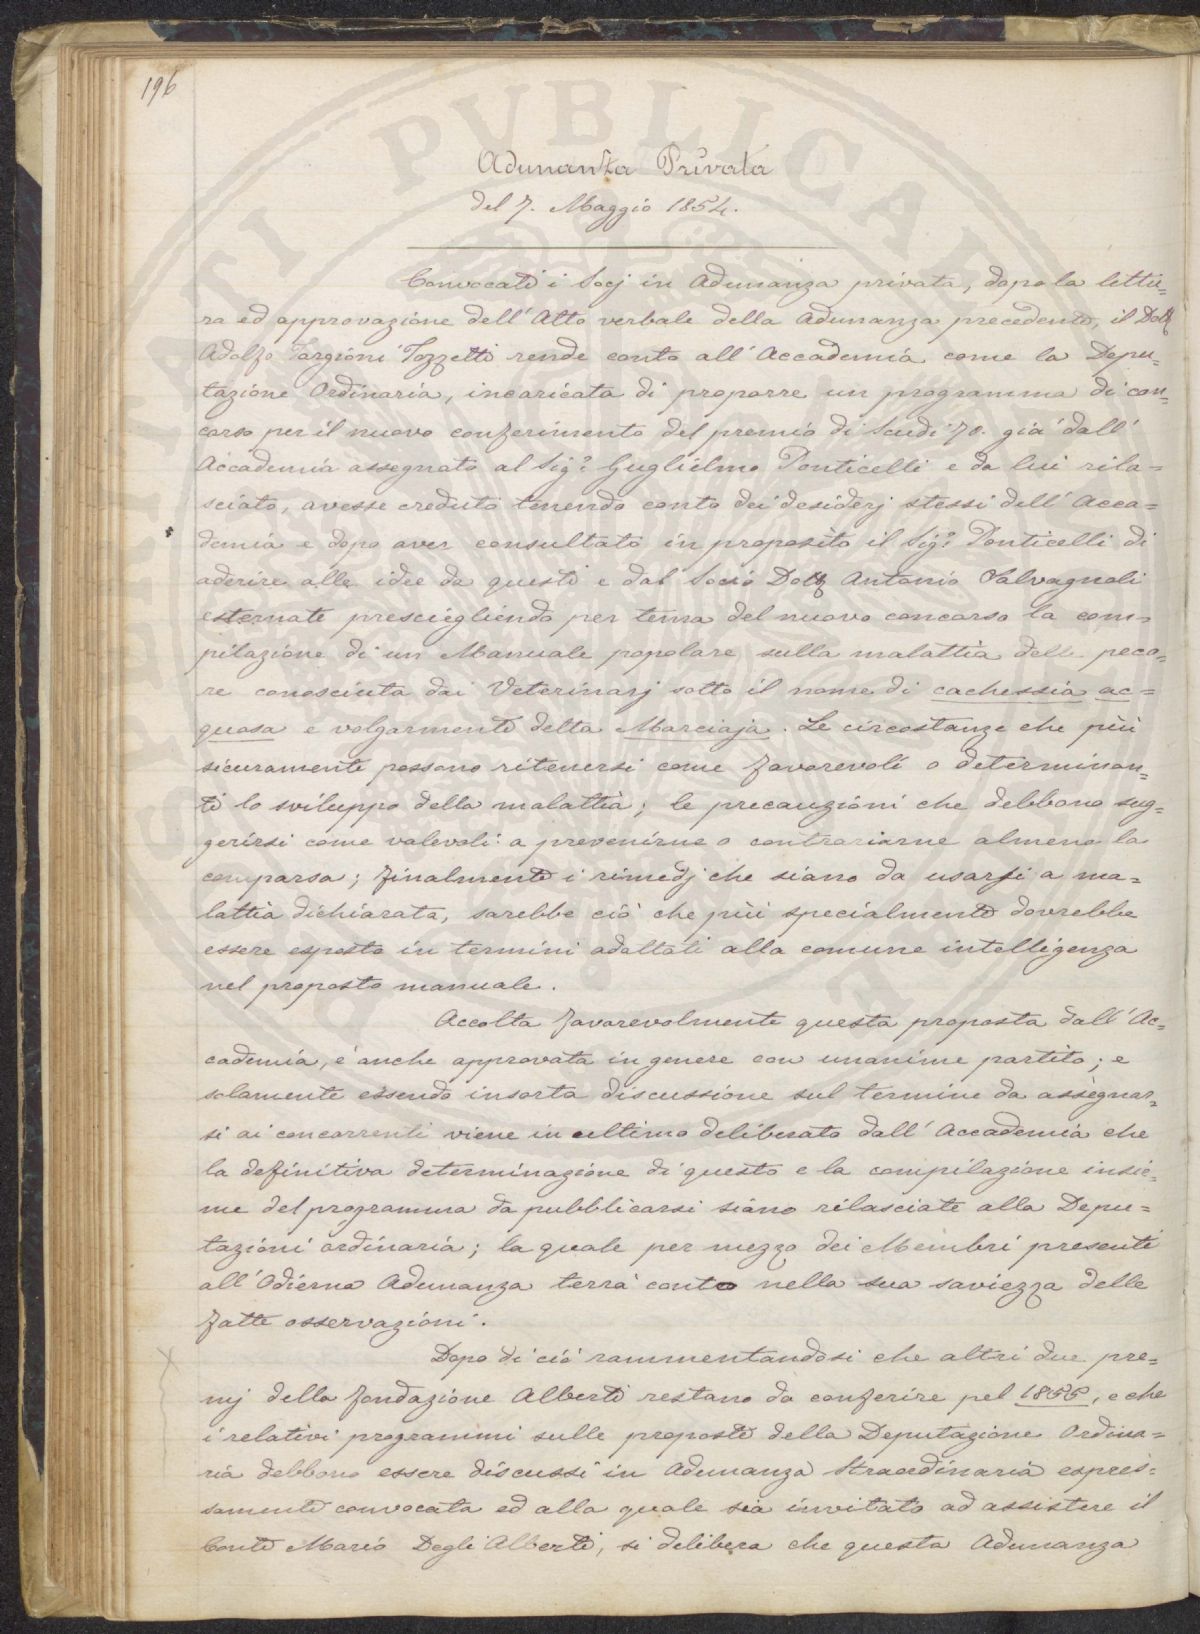 196
Adunanza Privata
del 7. Maggio 1854.
Convocati i Socj in Adunanza privata, dopo la lettu=
ra ed approvazione dell'Atto verbale della Adunanza precedente, il Dott
Adolfo Targioni Tozzetti rende conto all'Accademia come la Depu=
tazione Ordinaria, incaricata di proporre un programma di con=
corso per il nuovo conferimento del premio di Scudi 70. già dall'
Accademia assegnato al Sigr Guglielmo Ponticelli e da lui rila=
sciato, avesse creduto tenendo conto dei desiderj stessi dell'Acca=
demia e dopo aver consultato in proposito il Sigr Ponticelli di
aderire alle idee da questi e dal Socio Dott Antonio Salvagnoli
esternate presciegliendo per tema del nuovo concorso la com=
pilazione di un Manuale popolare sulla malattia delle peco=
re conosciuta dai Veterinarj sotto il nome di cachessia ac=
quosa e volgarmente detta Marciaja. Le circostanze che più
sicuramente possono ritenersi come favorevoli o determinan=
ti lo sviluppo della malattia; le precauzioni che debbono sug=
gerirsi come valevoli a prevenirne o contrariarne almeno la
comparsa; finalmente i rimedj che siano da usarsi a ma=
lattia dichiarata, sarebbe ciò che più specialmente dovrebbe
essere esposto in termini adattati alla comune intelligenza
nel proposto manuale.
Accolta favorevolmente questa proposta dall'Ac=
cademia, è anche approvata in genere con unanime partito; e
solamente essendo insorta discussione sul termine da assegnar=
si ai concorrenti viene in ultimo deliberato dall'Accademia che
la definitiva determinazione di questo e la compilazione insie=
me del programma da pubblicarsi siano rilasciate alla Depu=
tazioni ordinaria; la quale per mezzo dei Membri presenti
all'Odierna Adunanza terrà conto nella sua saviezza delle
fatte osservazioni.
Dopo di ciò rammentandosi che altri due pre=
mj della fondazione Alberti restano da conferire pel 1855, e che
i relativi programmi sulle proposte della Deputazione Ordina=
ria debbono essere discussi in Adunanza Straordinaria espres=
samente convocata ed alla quale sia invitato ad assistere il
Conte Mario Degli Alberti, si delibera che questa Adunanza